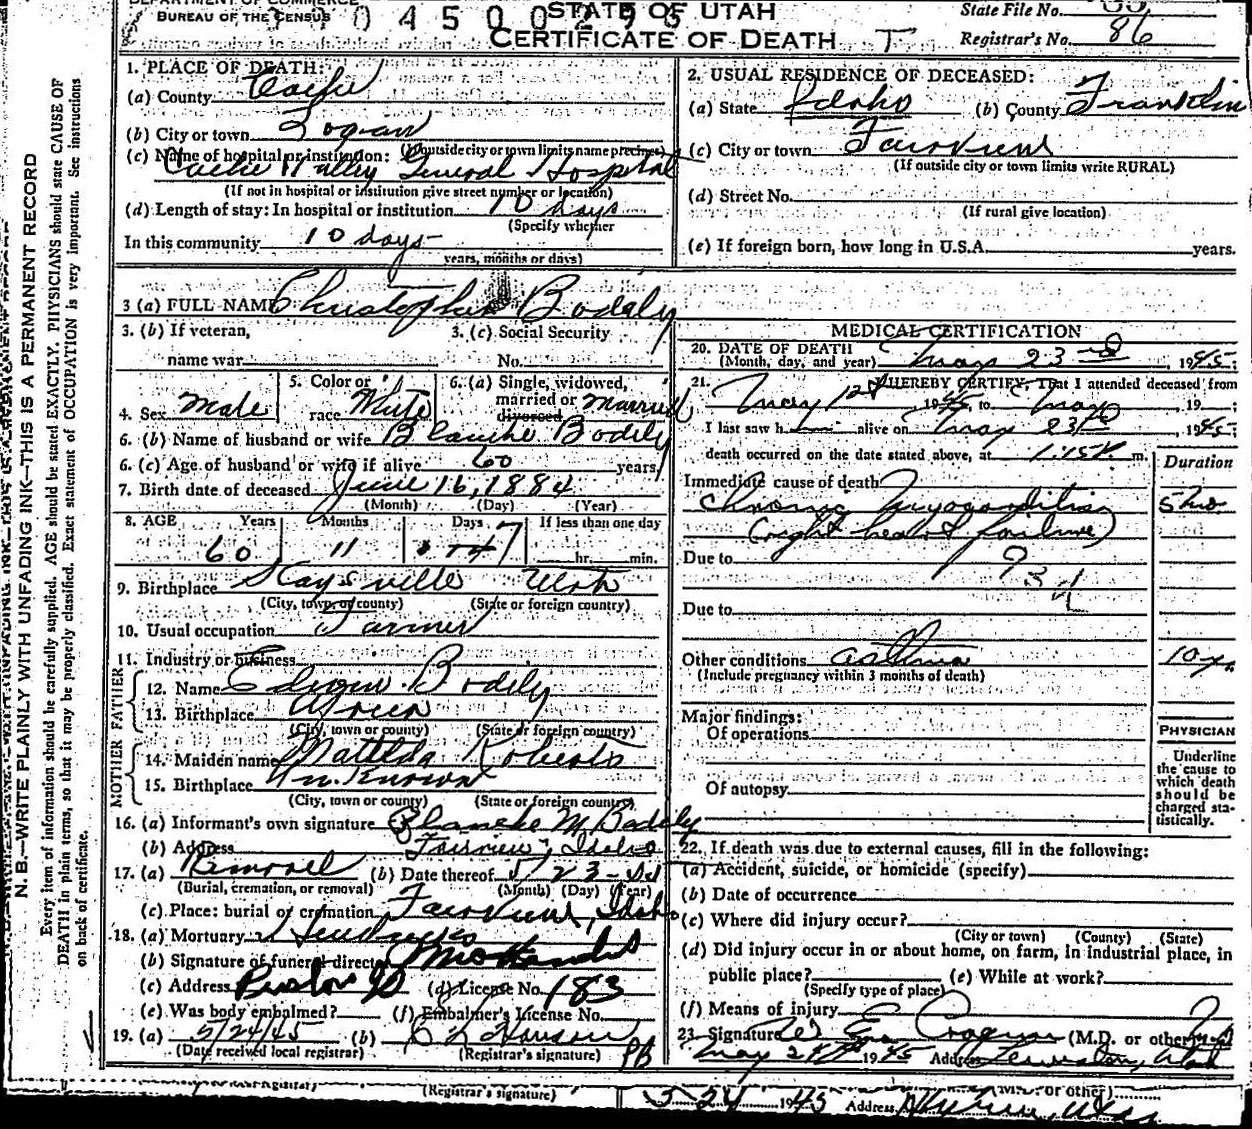 DEPARTMENT OF COMMERCE
BUREAU OF THE CENSUS
STATE OF UTAH
CERTIFICATE OF DEATH
State File No.
Registrar's No. 86
N. B.—WRITE PLAINLY WITH UNFADING INK—THIS IS A PERMANENT RECORD
Every item of information should be carefully supplied. AGE should be stated EXACTLY. PHYSICIANS should state CAUSE OF
DEATH in plain terms, so that it may be properly classified. Exact statement of OCCUPATION is very important. See instructions
on back of certificate.
1. PLACE OF DEATH:
(a) County Cache
(b) City or town Logan
(If outside city or town limits name precinct)
(c) Name of hospital or institution:
Cache Valley General Hospital
(If not in hospital or institution give street number or location)
(d) Length of stay: In hospital or institution 10 days
(Specify whether
In this community 10 days
years, months or days)
2. USUAL RESIDENCE OF DECEASED:
(a) State Idaho (b) County Franklin
(c) City or town Fairview
(If outside city or town limits write RURAL)
(d) Street No.
(If rural give location)
(e) If foreign born, how long in U.S.A. years.
3 (a) FULL NAME Christopher Bodely
3. (b) If veteran,
name war
3. (c) Social Security
No.
4. Sex Male
5. Color or
race White
6. (a) Single, widowed,
married or Married
divorced
6. (b) Name of husband or wife Blanche Bodily
6. (c) Age of husband or wife if alive 60 years
7. Birth date of deceased June 16, 1884
(Month) (Day) (Year)
8. AGE Years Months Days If less than one day
60 11 7 hr. min.
9. Birthplace Kaysville Utah
(City, town, or county) (State or foreign country)
10. Usual occupation Farmer
11. Industry or business
FATHER
12. Name Edwin Bodily
13. Birthplace
(City, town or county) (State or foreign country)
MOTHER
14. Maiden name Matilda Roberts
15. Birthplace Unknown
(City, town or county) (State or foreign country)
16. (a) Informant's own signature Blanche M Bodily
(b) Address Fairview, Idaho
17. (a) Removal (b) Date thereof 5/23-
(Burial, cremation, or removal) (Month) (Day) (Year)
(c) Place: burial or cremation Fairview, Idaho
18. (a) Mortuary Hendricks
(b) Signature of funeral director
(c) Address Preston Id (d) License No. 183
(e) Was body embalmed? (f) Embalmer's License No.
19. (a) 5/24/45 (b)
(Date received local registrar) (Registrar's signature)
MEDICAL CERTIFICATION
20. DATE OF DEATH
(Month, day, and year) May 23rd, 1945;
21. I HEREBY CERTIFY, That I attended deceased from
May 1st 1945, to May, 19 ;
I last saw h alive on May 23rd, 1945;
death occurred on the date stated above, at 1:15 P m.
Duration
Immediate cause of death
Chronic Myocarditis 5 mo.
(right heart failure)
Due to
Due to
Other conditions asthma 10 yr.
(Include pregnancy within 3 months of death)
Major findings:
Of operations
Of autopsy
PHYSICIAN
Underline
the cause to
which death
should be
charged sta-
tistically.
22. If death was due to external causes, fill in the following:
(a) Accident, suicide, or homicide (specify)
(b) Date of occurrence
(c) Where did injury occur?
(City or town) (County) (State)
(d) Did injury occur in or about home, on farm, in industrial place, in
public place? (e) While at work?
(Specify type of place)
(f) Means of injury
23. Signature (M.D. or other)
May 24 1945 Address Lewiston, Utah
(Registrar's signature)
(M.D. or other)
5-24 1945 Address